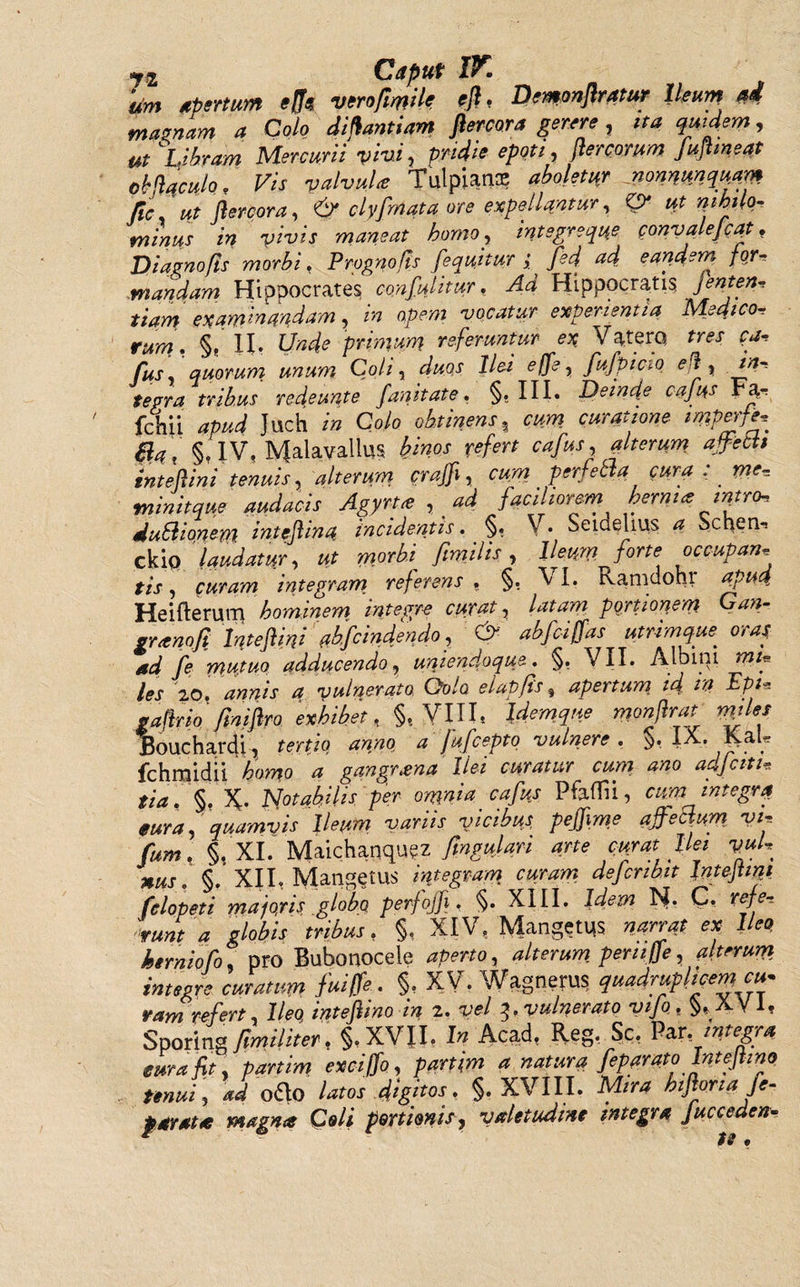 72 Caput IV.
um apertum eſſe veroſimile eſt. Demonſtratur Ileum ad
magnam a Colo diſtantiam ſtercora gerere, ita quidem,
ut Libram Mercurii vivi, pridie epoti, ſtercorum ſuſtineat
obſtaculo. Vis valvulæ Tulpianæ aboletur nonnunquam
ſic, ut ſtercora, & clyſmata ore expellantur, & ut nihilo-
minus in vivis maneat homo, integreque convaleſcat.
Diagnoſis morbi. Prognoſis ſequitur; ſed ad eandem for-
mandam Hippocrates conſulitur. Ad Hippocratis ſenten-
tiam examinandam, in opem vocatur experientia Medico-
rum. §. II. Unde primum referuntur ex Vatero tres ca-
ſus, quorum unum Coli, duos Ilei eſſe, ſuſpicio eſt, in-
tegra tribus redeunte ſanitate. §. III. Deinde caſus Fa-
ſchii apud Juch in Colo obtinens, cum curatione imperfe-
cta. §. IV. Malavallus binos refert caſus, alterum affecti
inteſtini tenuis, alterum craſſi, cum perfecta cura: me-
minitque audacis Agyrtæ, ad faciliorem herniæ intro-
ductionem inteſtina incidentis. §. V. Seidelius a Schen-
ckio laudatur, ut morbi ſimilis, Ileum forte occupan-
tis, curam integram referens. §. VI. Ramdohr apud
Heiſterum hominem integre curat, latam portionem Gan-
grænoſi Inteſtini abſcindendo, & abſciſſas utrimque oras
ad ſe mutuo adducendo, uniendoque. §. VII. Albini mi-
les 20. annis a vulnerato Colo elapſis, apertum id in Epi-
gaſtrio ſiniſtro exhibet. §. VIII. Idemque monſtrat miles
Bouchardi, tertio anno a ſuſcepto vulnere. §. IX. Kal-
ſchmidii homo a gangræna Ilei curatur cum ano adſciti-
tia. §. X. Notabilis per omnia caſus Pfaffii, cum integra
cura, quamvis Ileum variis vicibus peſſime affectum vi-
ſum. §. XI. Maichanquez ſingulari arte curat Ilei vul-
nus. §. XII. Mangetus integram curam deſcribit Inteſtini
ſclopeti majoris globo perfoſſi. §. XIII. Idem N. C. refe-
runt a globis tribus. §. XIV. Mangetus narrat ex Ileo
hernioſo, pro Bubonocele aperto, alterum periiſſe, alterum
integre curatum fuiſſe. §. XV. Wagnerus quadruplicem cu-
ram refert, Ileo inteſtino in 2. vel 3. vulnerato viſo. §. XVI.
Sporing ſimiliter. §. XVII. In Acad. Reg. Sc. Par. integra
cura fit, partim exciſſo, partim a natura ſeparato Inteſtino
tenui, ad octo latos digitos. §. XVIII. Mira hiſtoria ſe-
paratæ magnæ Coli portionis, valetudine integra ſucceden-
te.